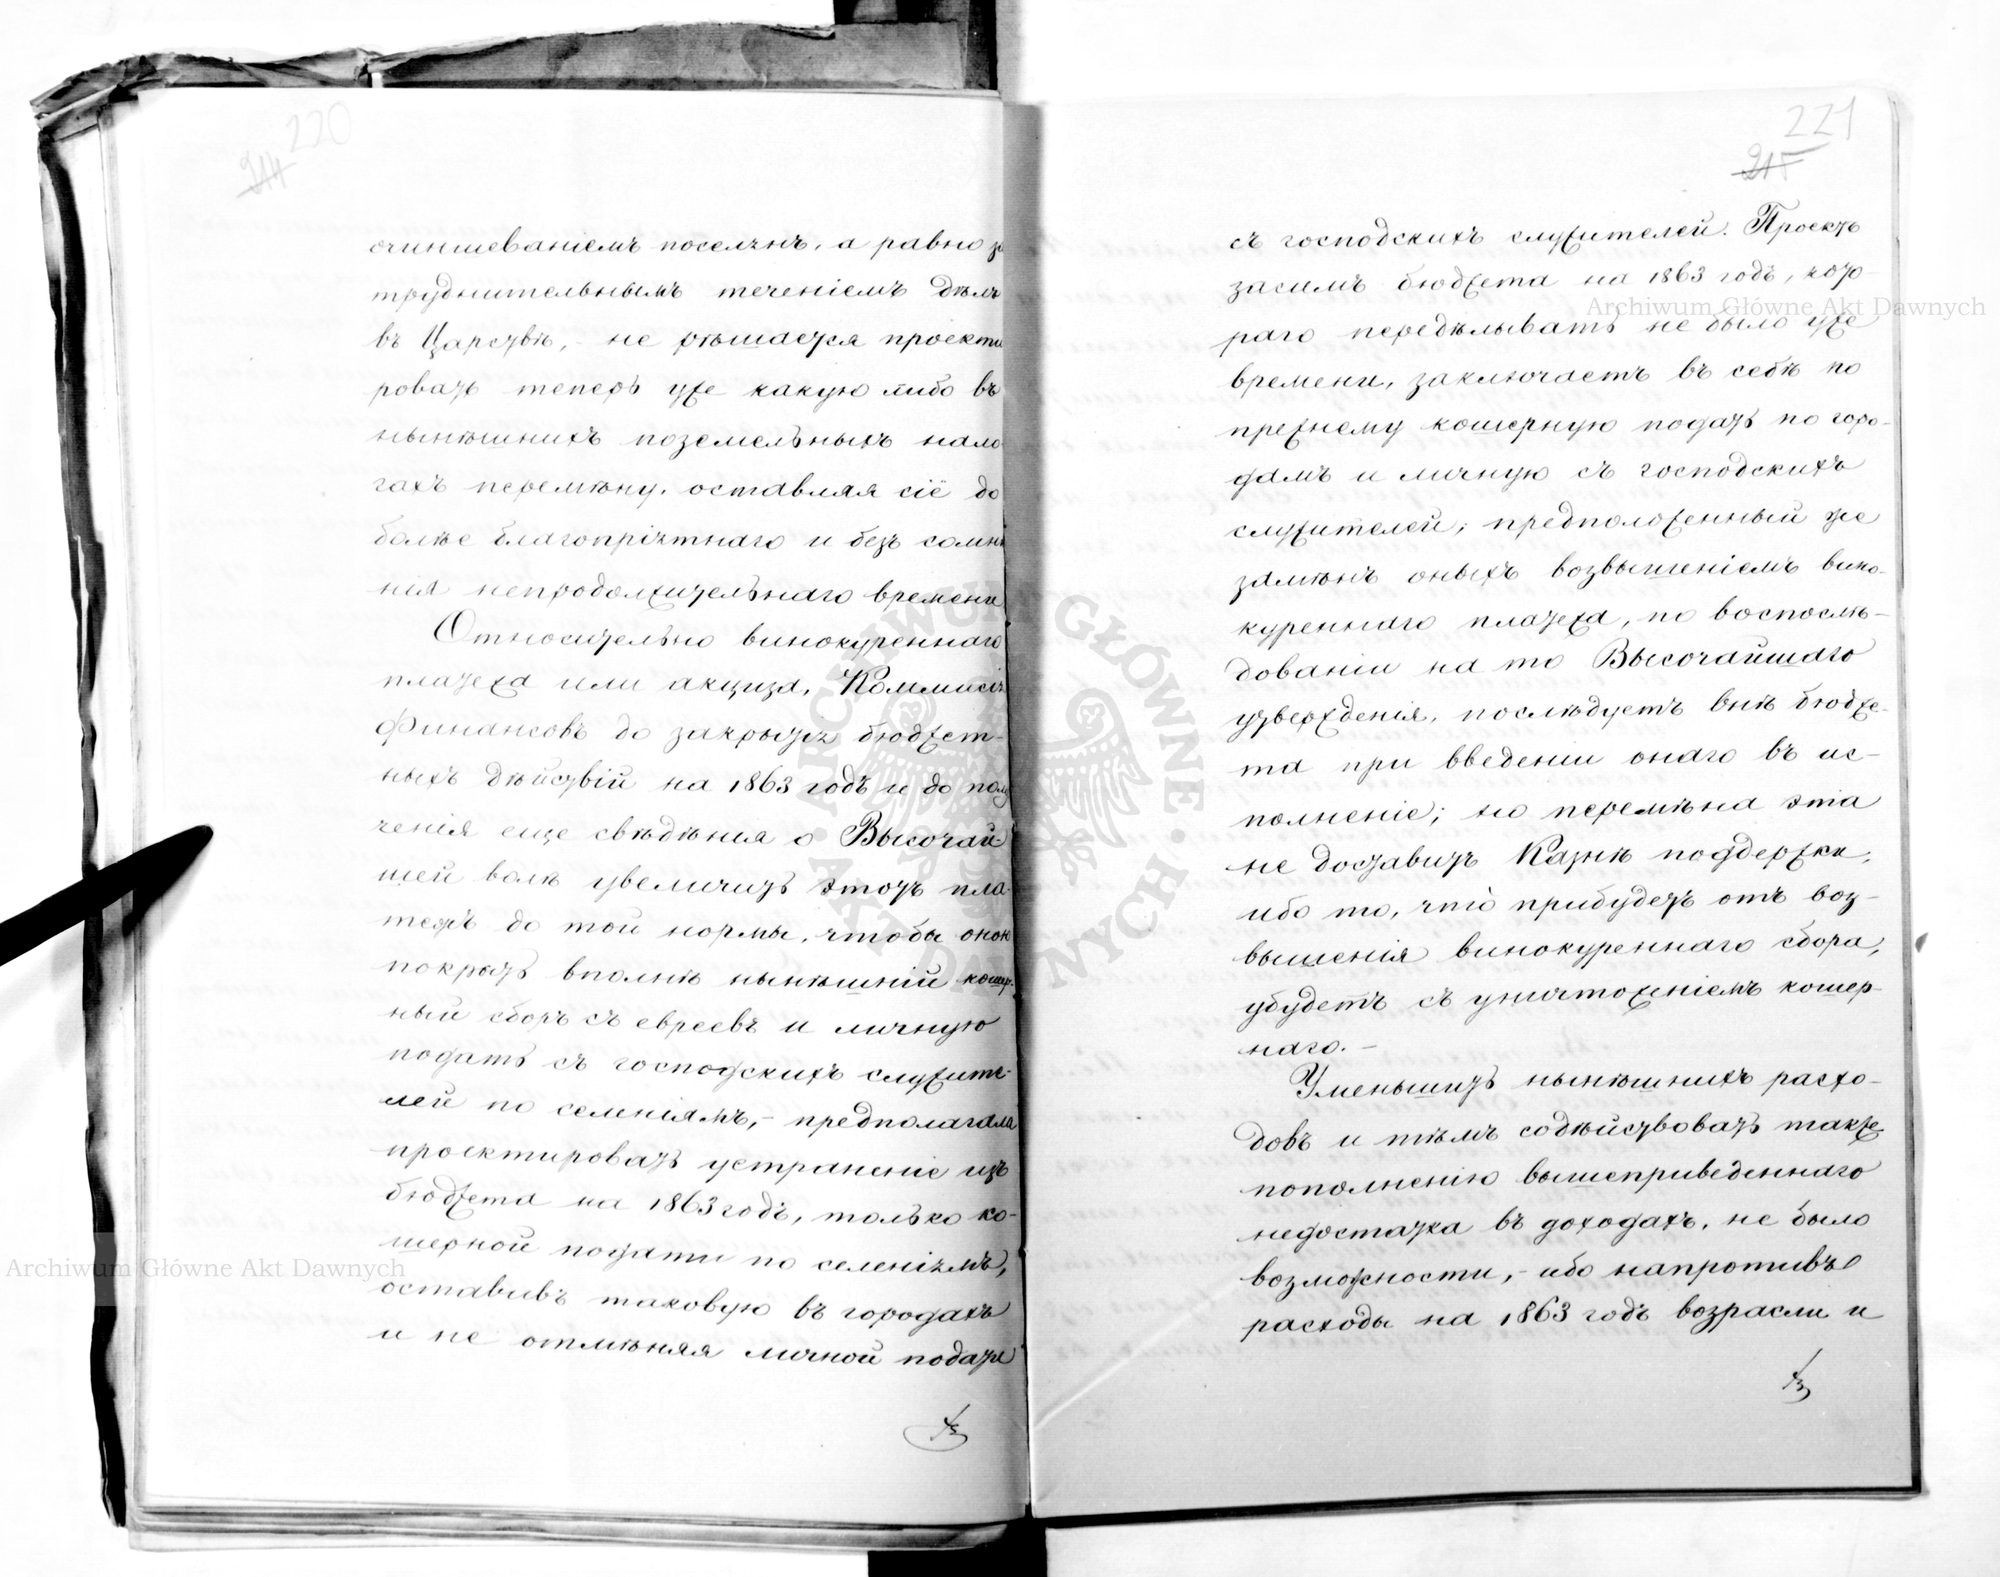 220
214
очиншеваніемъ поселянъ, а равно за
труднительнымъ теченіемъ дѣлъ
въ Царствѣ, - не рѣшается проекти
ровать теперь уже какую либо въ
нынѣшнихъ поземельныхъ нало
гахъ перемѣну, оставляя сіё до
болѣе благопріятнаго и безъ сомнѣ
нія непродолжительнаго времени
Относительно винокуреннаго
платежа или акциза, Коммисія
Финансовъ до закрытія бюджет-
ныхъ дѣйствій на 1863 годъ и до полу
ченія еще свѣдѣнія о Высочай-
шей волѣ увеличить этотъ пла-
тежъ до той нормы, чтобы оною
покрыть вполнѣ нынѣшній кошер-
ный сборъ съ евреевъ и личную
подать съ господскихъ служите-
лей по селеніямъ, - предполагала
проектировать устраненіе изъ
бюджета на 1863 годъ, только ко-
шерной подати по селеніямъ,
оставивъ таковую въ городахъ
и не отмѣняя личной подати
221
215
съ господскихъ служителей. Проектъ
засимъ бюджета на 1863 годъ, кото
раго передѣлывать не было уже
времени, заключаетъ въ себѣ по
прежнему кошерную подать по горо-
дамъ и личную съ господскихъ
служителей; предположенный же
замѣнъ оныхъ возвышеніемъ вино-
куреннаго платежа, по воспослѣ-
дованіи на то Высочайшаго
утвержденія, послѣдуетъ внѣ бюдже-
та при введеніи онаго въ ис-
полненіе; но перемѣна эта
не доставитъ Казнѣ поддержки,
ибо то, что прибудетъ отъ воз-
вышенія винокуреннаго сбора,
убудетъ съ уничтоженіемъ кошер-
наго. -
Уменьшить нынѣшнихъ расхо-
довъ и тѣмъ содѣйствовать также
пополненію вышеприведеннаго
недостатка въ доходахъ, не было
возможности, - ибо напротивъ
расходы на 1863 годъ возрасли и
Archiwum Główne Akt Dawnych
Archiwum Główne Akt Dawnych
ARCHIWUM GŁÓWNE AKT DAWNYCH